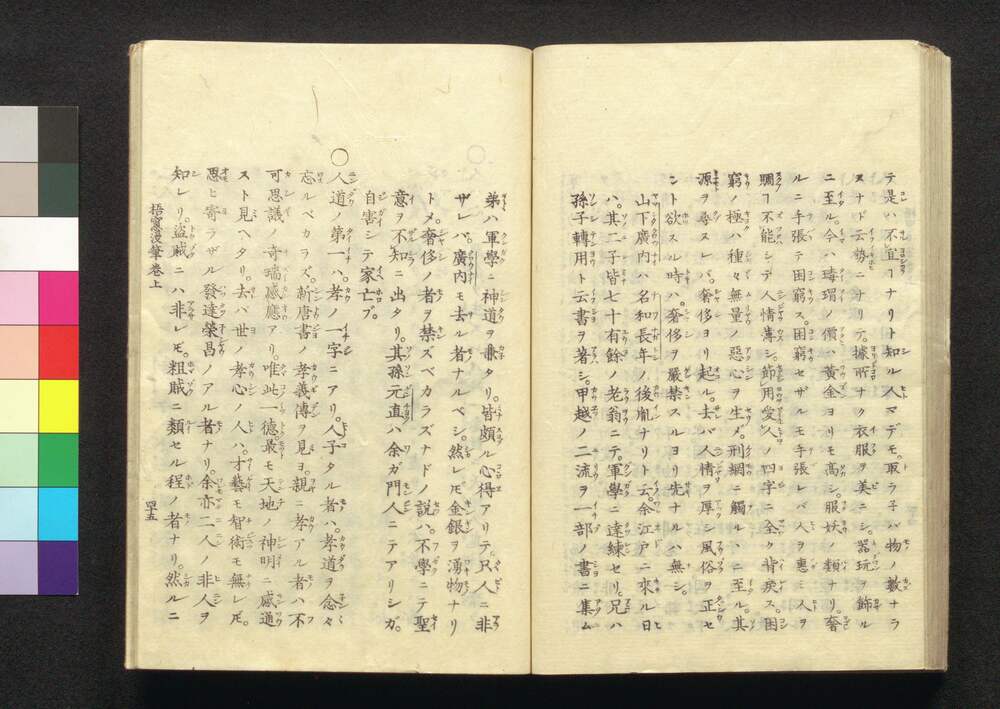 テ是ハ不宜ヿナリト知ル人マデモ。取ラ子バ物ノ數ナラ
ヌナド云勢ニナリテ。據所ナク衣服ヲ美ニシ。器玩ヲ飾ル
ニ至ル。今ハ瑇瑁ノ價ハ黄金ヨリモ高シ。服妖ノ類ナリ。奢
ルニ手張テ困窮ス。困窮セザルモ手張レバ人ヲ惠ミ人ヲ
賙ヿ不能シテ人情薄シ。節用愛人ノ四字ニ全ク背戾ス。困
窮ノ極ハ種々無量ノ惡心ヲ生メ。刑網ニ觸ルヽニ至ル。其
源ヲ尋ヌレバ。奢侈ヨリ起ル。去バ人情ヲ厚シ風俗ヲ正セ
ント欲スル時ハ。奢侈ヲ嚴禁スルヨリ先ナルハ無シ。
山下廣内ハ名和長年ノ後胤ナリト云。余江戸ニ來ル日
ハ。其二子皆七十有餘ノ老翁ニテ。軍學ニ達練セリ。兄ハ
孫子轉用ト云書ヲ著シ。甲越ノ二流ヲ一部ノ書ニ集ム
弟ハ軍學ニ神道ヲ兼タリ。皆頗ル心得アリテ。只人ニ非
ザレバ。廣内モ去ル者ナルベシ。然レ𪜈金銀ヲ湧物ナリ
トメ。奢侈ノ者ヲ禁ズベカラズナドノ説ハ。不學ニテ聖
意ヲ不知ニ出タリ。其孫元直ハ余ガ門人ニテアリシガ。
自害シテ家亡ブ。
○人道ノ第一ハ。孝ノ一字ニアリ。人子タル者ハ。孝道ヲ念々
忘ルベカラズ。新唐書ノ孝義傳ヲ見ヨ。親ニ孝アル者ハ不
可思議ノ奇瑞感應アリ。唯此一德。最モ天地ノ神明ニ感通
スト見ヘタリ。去バ世ノ孝心ノ人ハ。才藝モ智術モ無レ𪜈。
思ヒ寄ラザル發達榮昌ノアル者ナリ。余亦二人ノ非人ヲ
知レリ。盗賊ニハ非レ𪜈。粗賊ニ類セル程ノ者ナリ。然ルニ
梧窻漫筆巻上
四十五